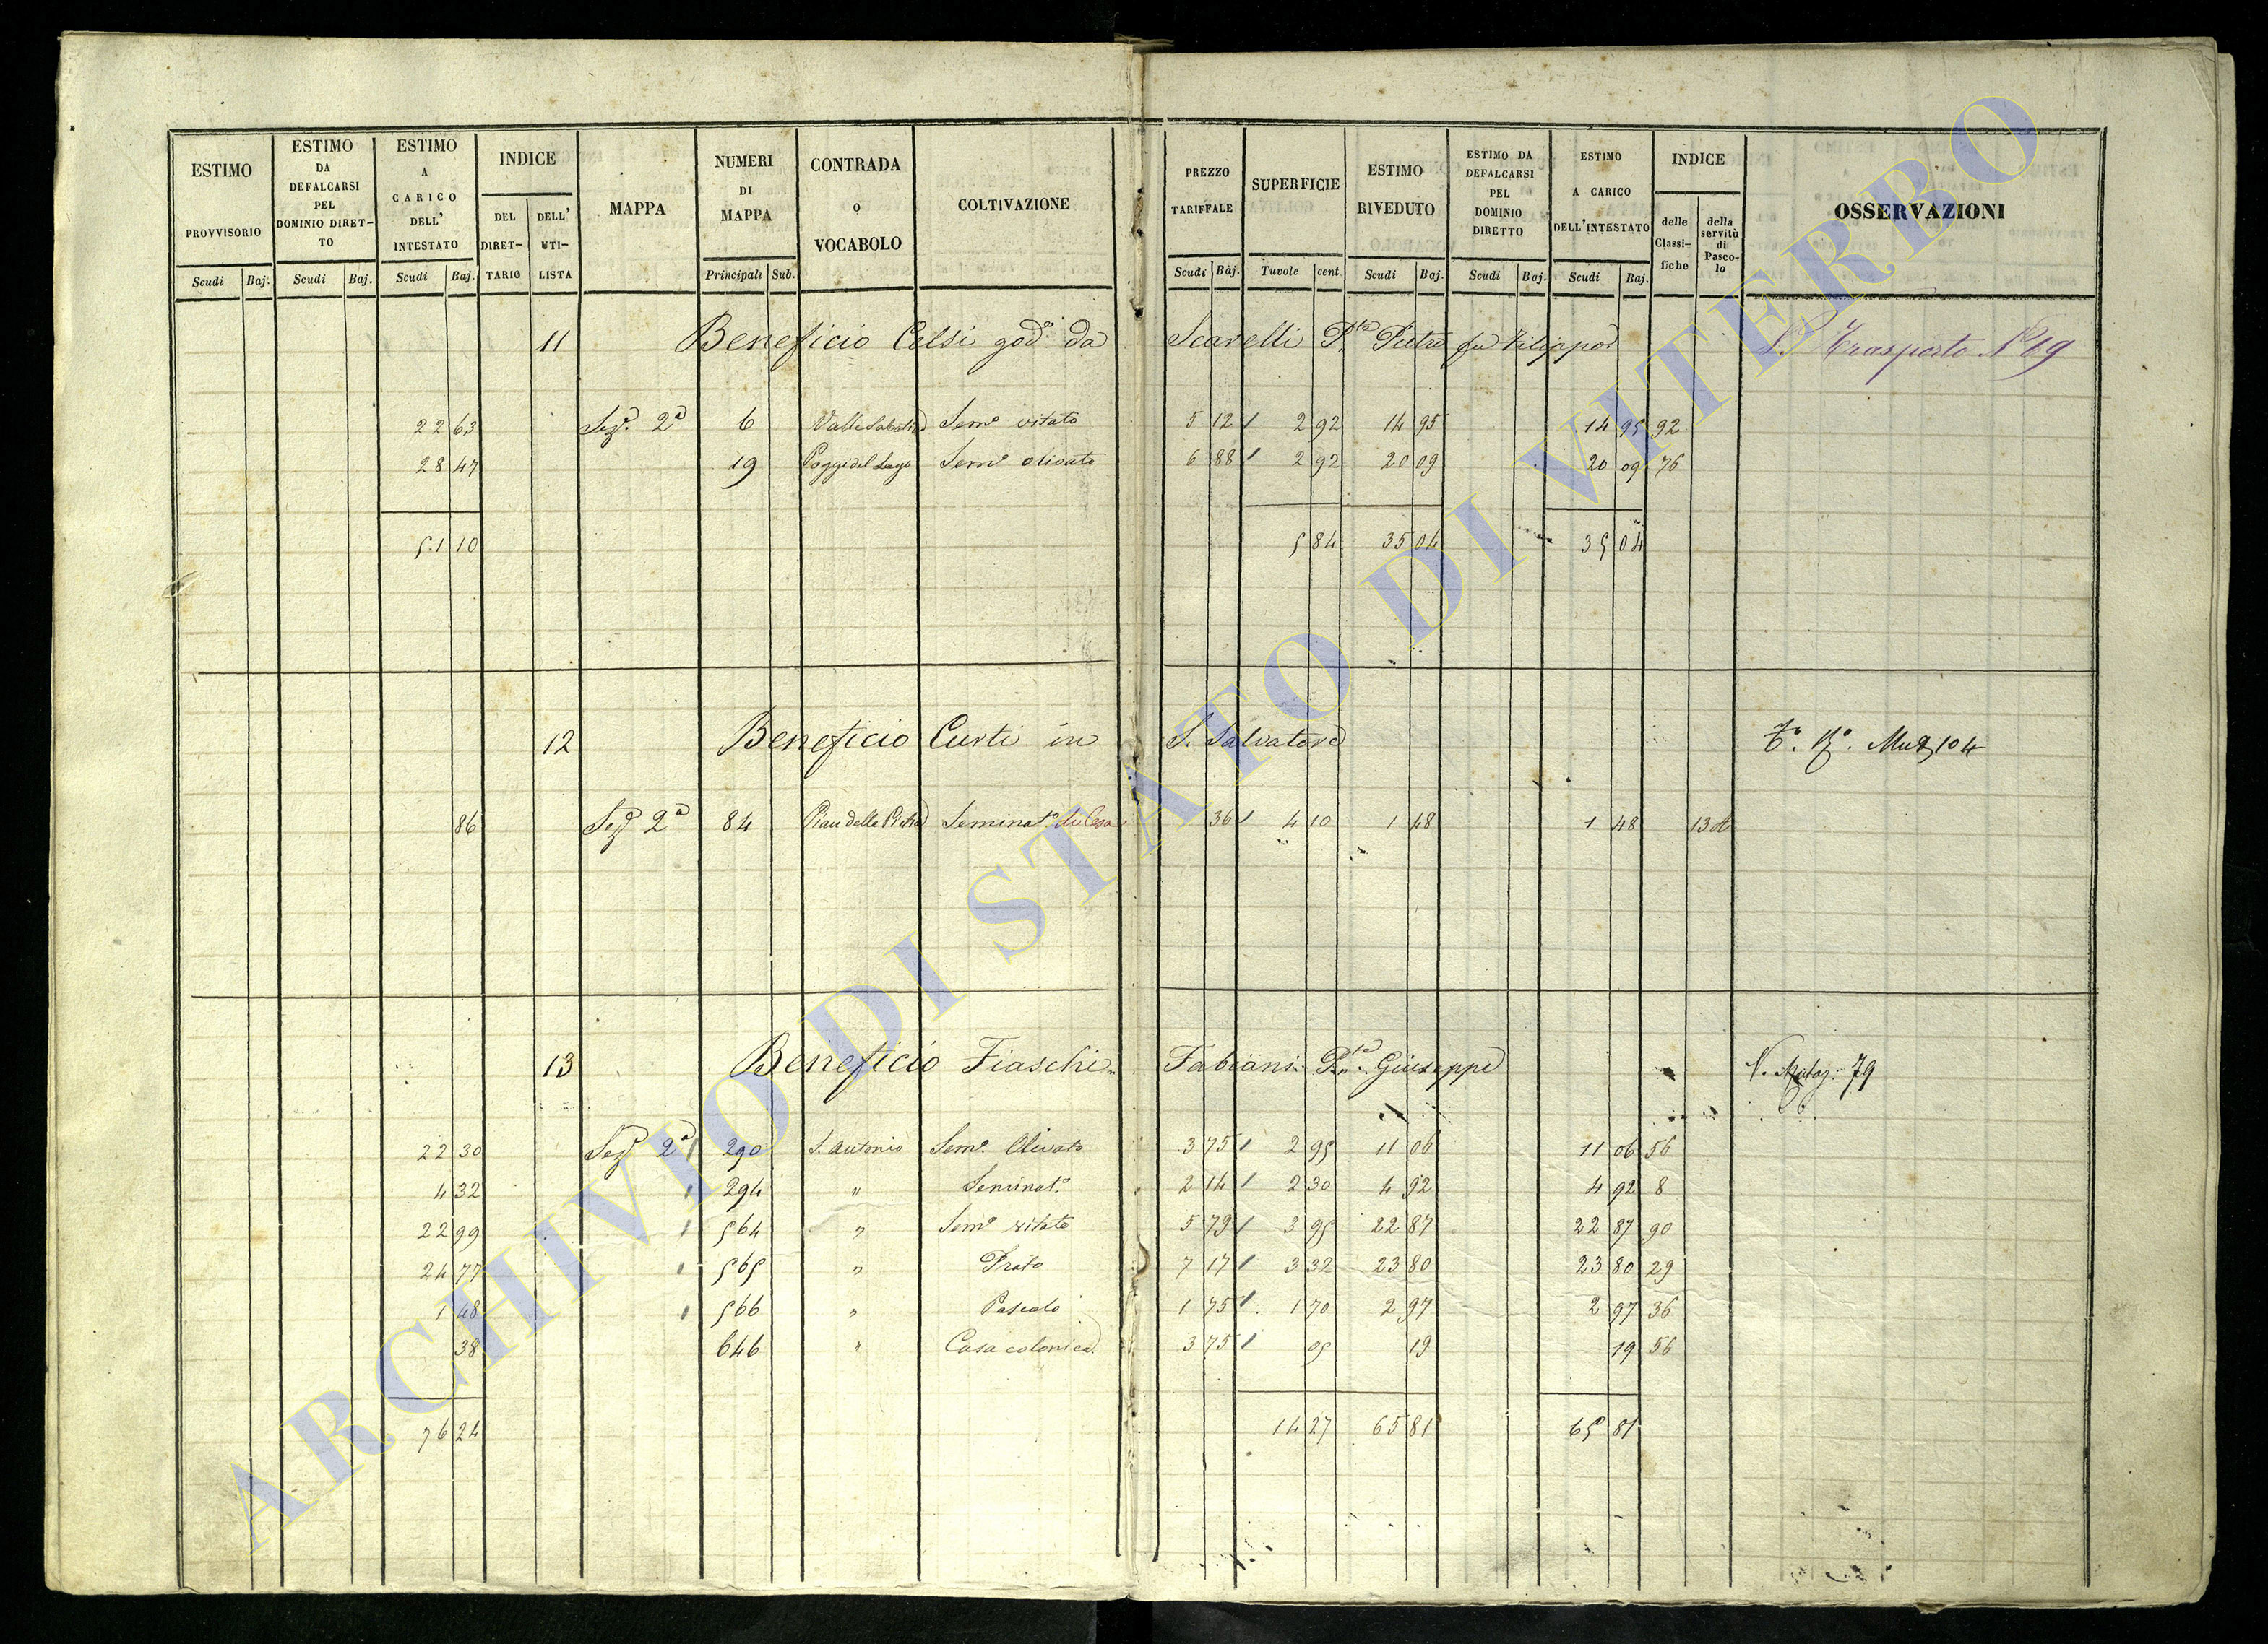 ESTIMO PROVVISORIO Scudi Baj.
ESTIMO DA DEFALCARSI PEL DOMINIO DIRET-TO Scudi Baj.
ESTIMO A CARICO DELL' INTESTATO Scudi Baj.
INDICE DEL DIRET-TARIO DELL' UTI-LISTA
MAPPA
NUMERI DI MAPPA Principali Sub.
CONTRADA O VOCABOLO
COLTIVAZIONE
PREZZO TARIFFALE Scudi Baj.
SUPERFICIE Tavole cent.
ESTIMO RIVEDUTO Scudi Baj.
ESTIMO DA DEFALCARSI PEL DOMINIO DIRETTO Scudi Baj.
ESTIMO A CARICO DELL'INTESTATO Scudi Baj.
INDICE delle Classi-fiche della servitù di Pasco-lo
OSSERVAZIONI
11 Beneficio Celsi god.o da Scarelli P.te Pietro fu Filippo Trasporto N 49
22 63 Sez.e 2a 6 Sem.o vitato 5 12 2 92 14 95 14 95 92
28 47 19 Poggi del Lago Sem.o olivato 6 88 2 92 20 09 20 09 76
51 10 5 84 35 04 35 04
12 Beneficio Curti in S. Salvatore 104
86 Sez.e 2a 84 Seminat.o 36 4 10 1 48 1 48 13
13 Beneficio Fiaschi Fabiani P.te Giuseppe 79
22 30 Sez.e 2a 290 S. Antonio Sem.o Olivato 3 75 2 95 11 06 11 06 56
4 32 294 " Seminat.o 2 14 2 30 4 92 4 92 8
22 99 564 " Sem.o vitato 5 79 3 95 22 87 22 87 90
24 77 565 " Prato 7 17 3 32 23 80 23 80 29
1 48 566 " Pascolo 1 75 1 70 2 97 2 97 36
38 646 " Casa colonica 3 75 05 19 19 56
76 24 14 27 65 81 65 81
ARCHIVIO DI STATO DI VITERBO